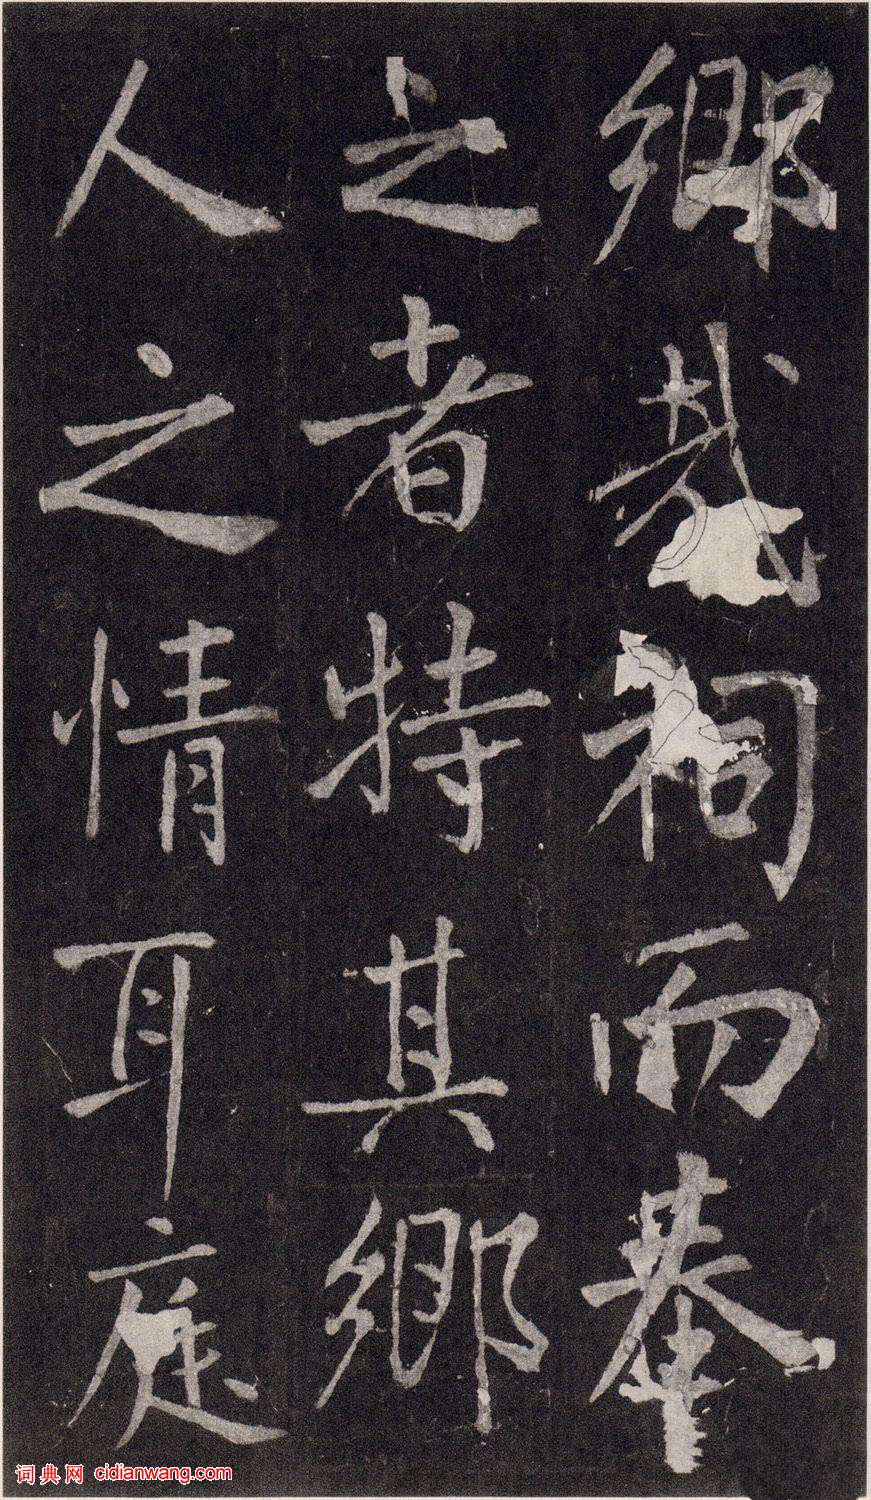 鄉哉祠而奉
之者特其鄉
人之情耳庭
词典网 cidianwang.com